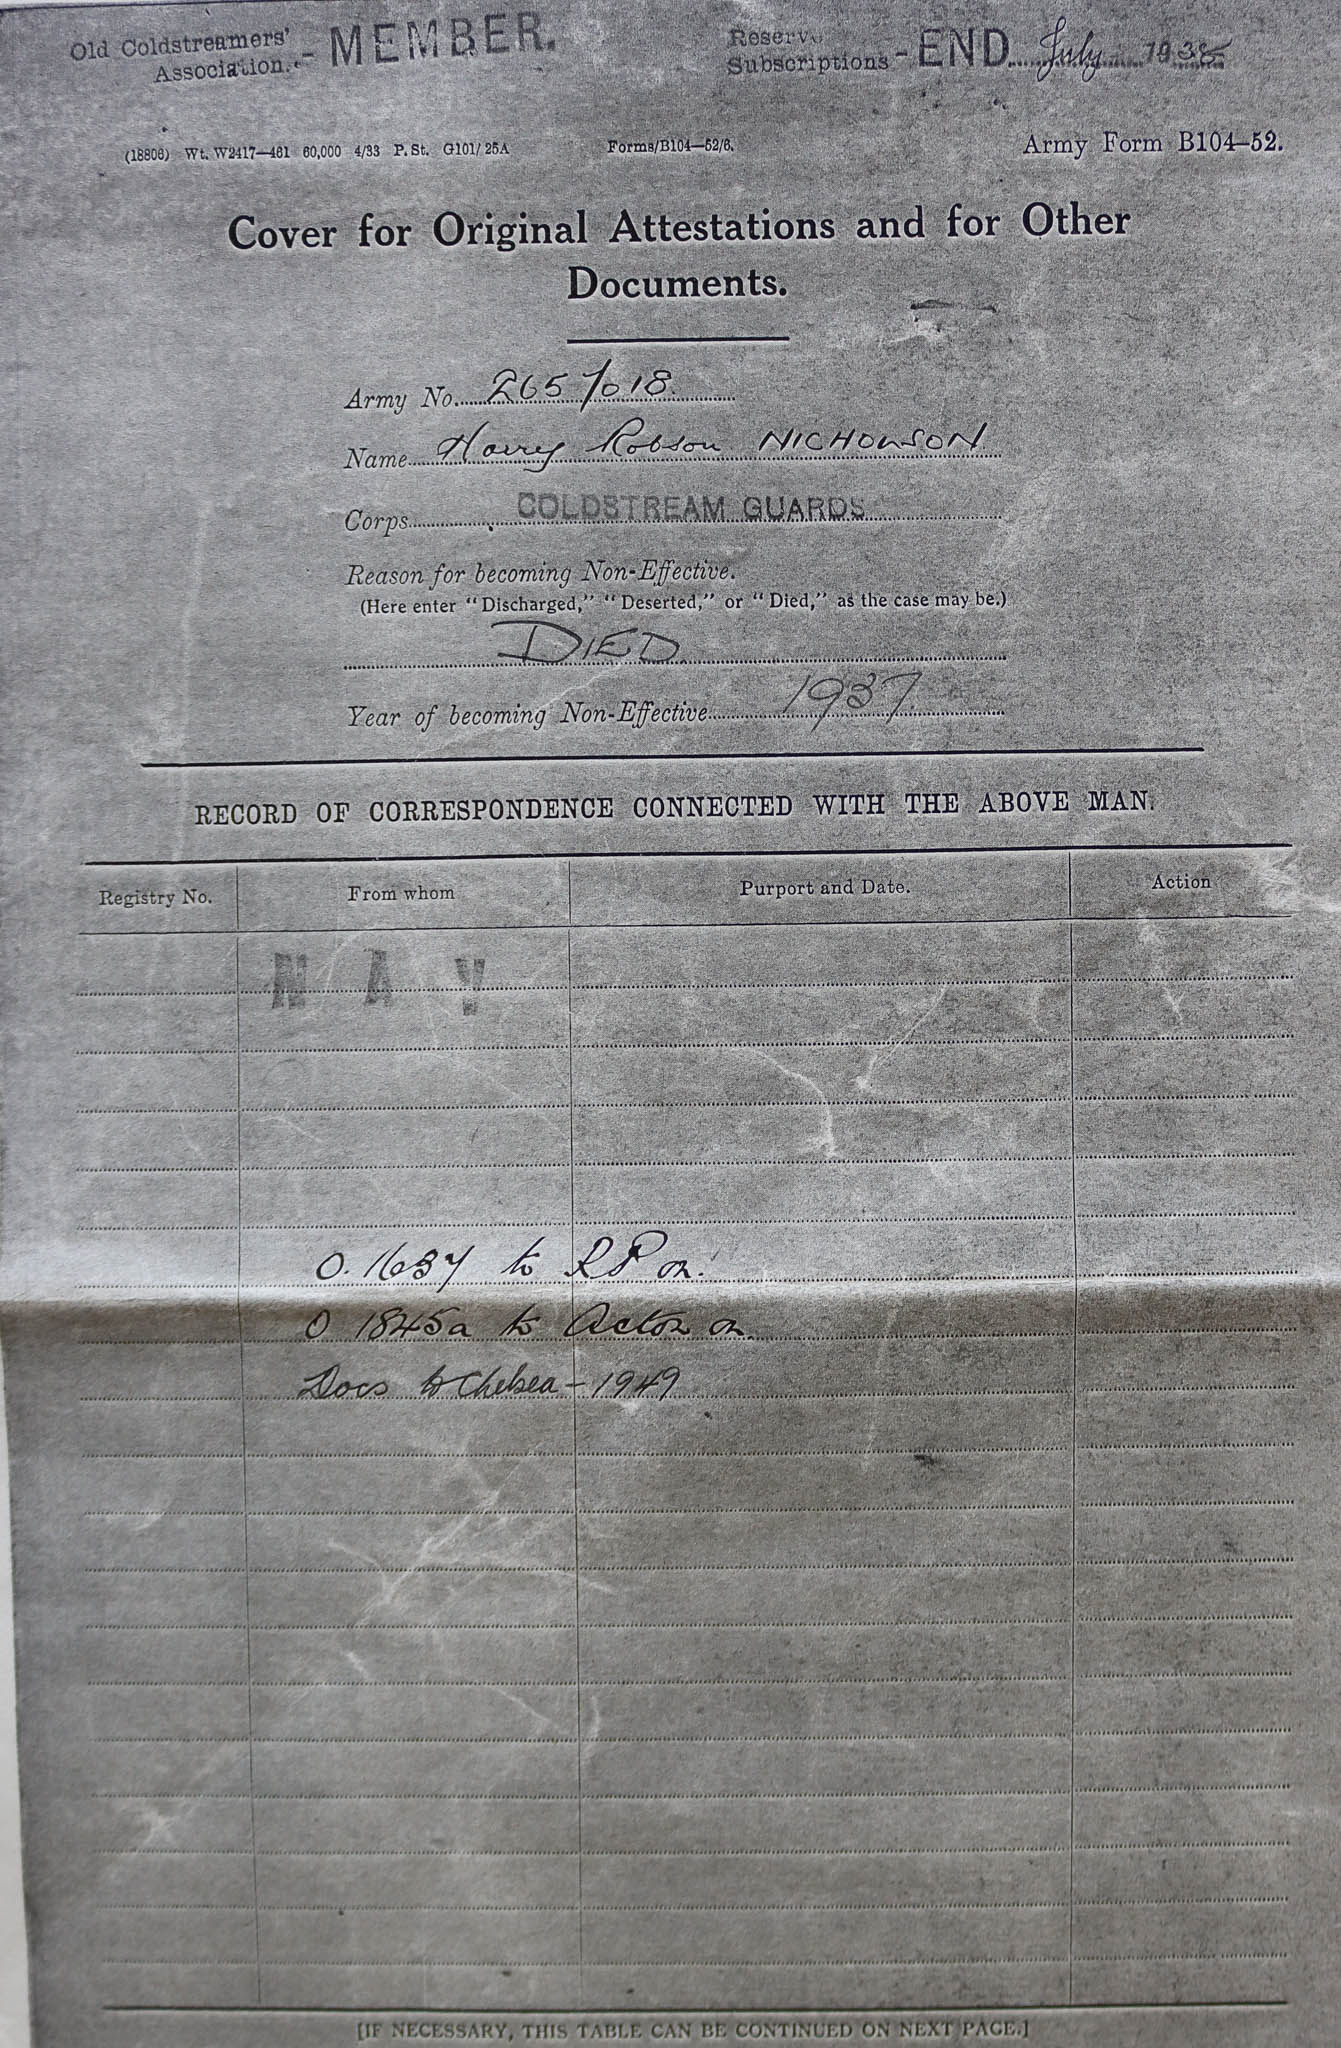 Old Coldstreamers' Association. - MEMBER.
Reserve Subscriptions - END July 1938
(18806) Wt. W2417—461 60,000 4/33 P. St. G101/25A Forms/B104—52/6. Army Form B104–52.
Cover for Original Attestations and for Other
Documents.
Army No. 2657018.
Name Harry Robson NICHOLSON
Corps COLDSTREAM GUARDS
Reason for becoming Non-Effective.
(Here enter "Discharged," "Deserted," or "Died," as the case may be.)
DIED
Year of becoming Non-Effective 1937.
RECORD OF CORRESPONDENCE CONNECTED WITH THE ABOVE MAN.
Registry No. From whom Purport and Date. Action
N A Y
O. 1637 to RP on.
O 1845a to Acton on.
Docs to Chelsea – 1949
[IF NECESSARY, THIS TABLE CAN BE CONTINUED ON NEXT PAGE.]